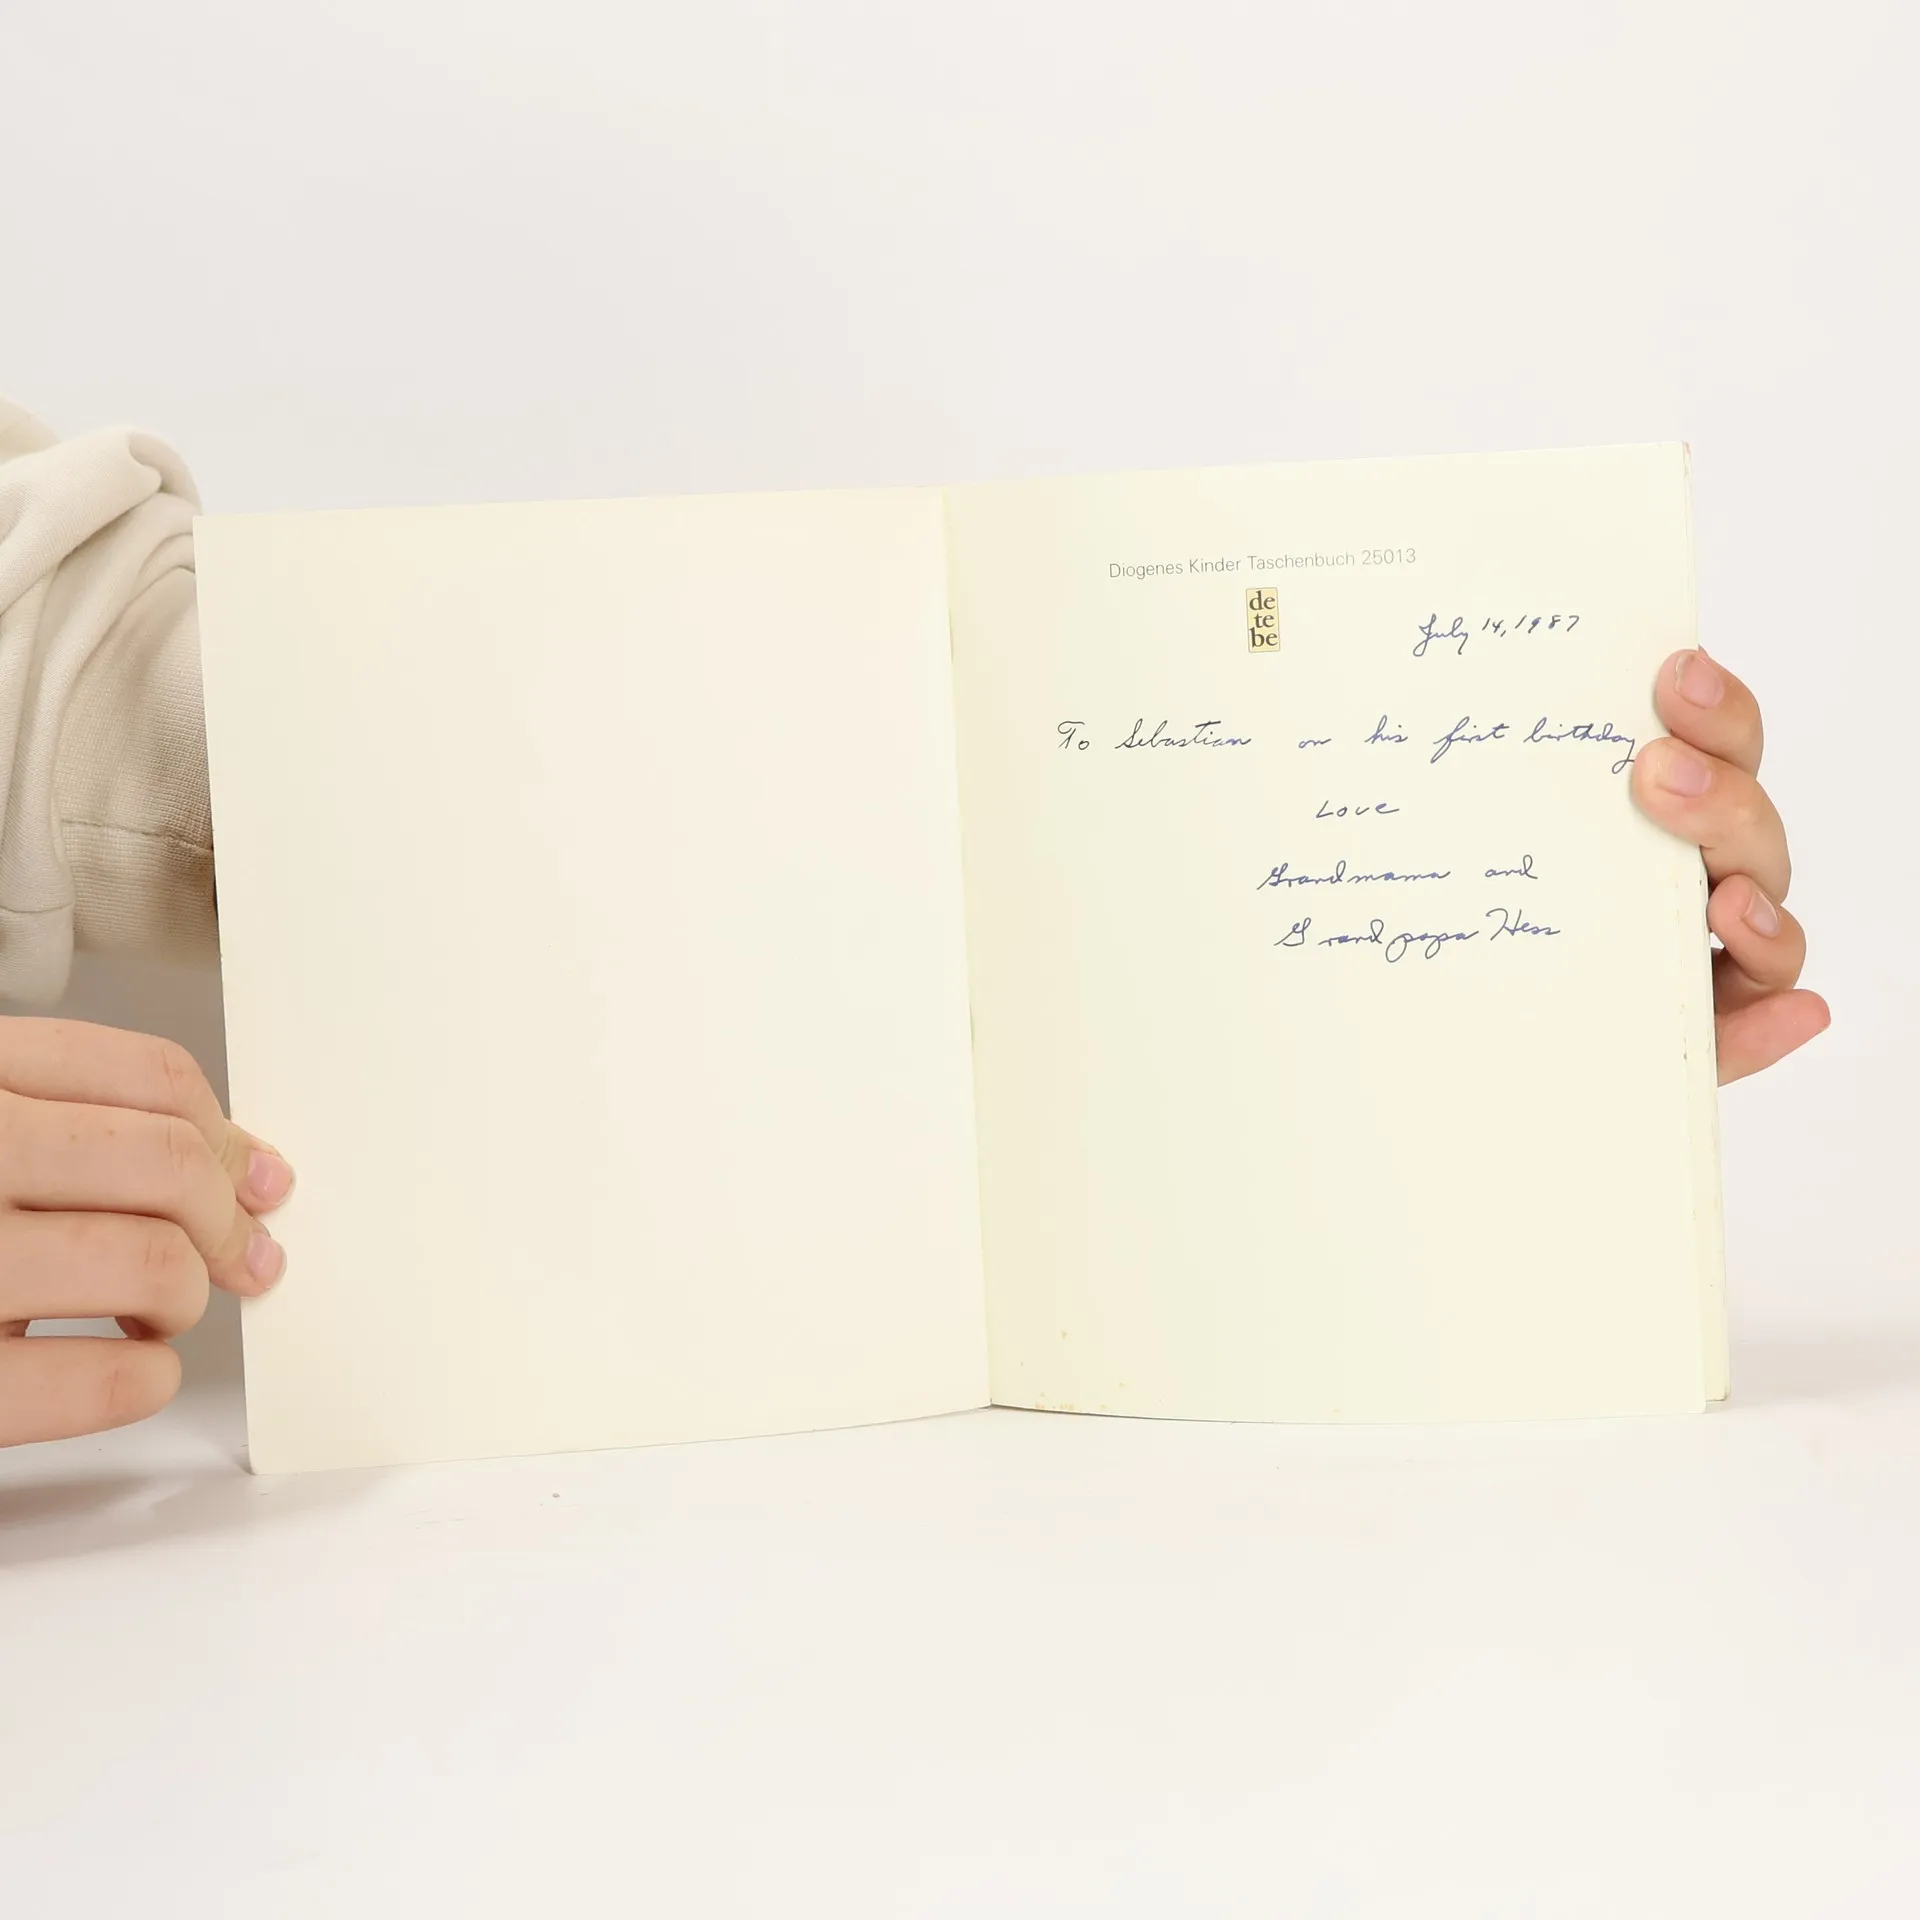 Diogenes Kinder Taschenbuch 25013
de
te
be
July 14, 1987
To Sebastian on his first birthday
Love
Grandmama and
Grandpapa Hess